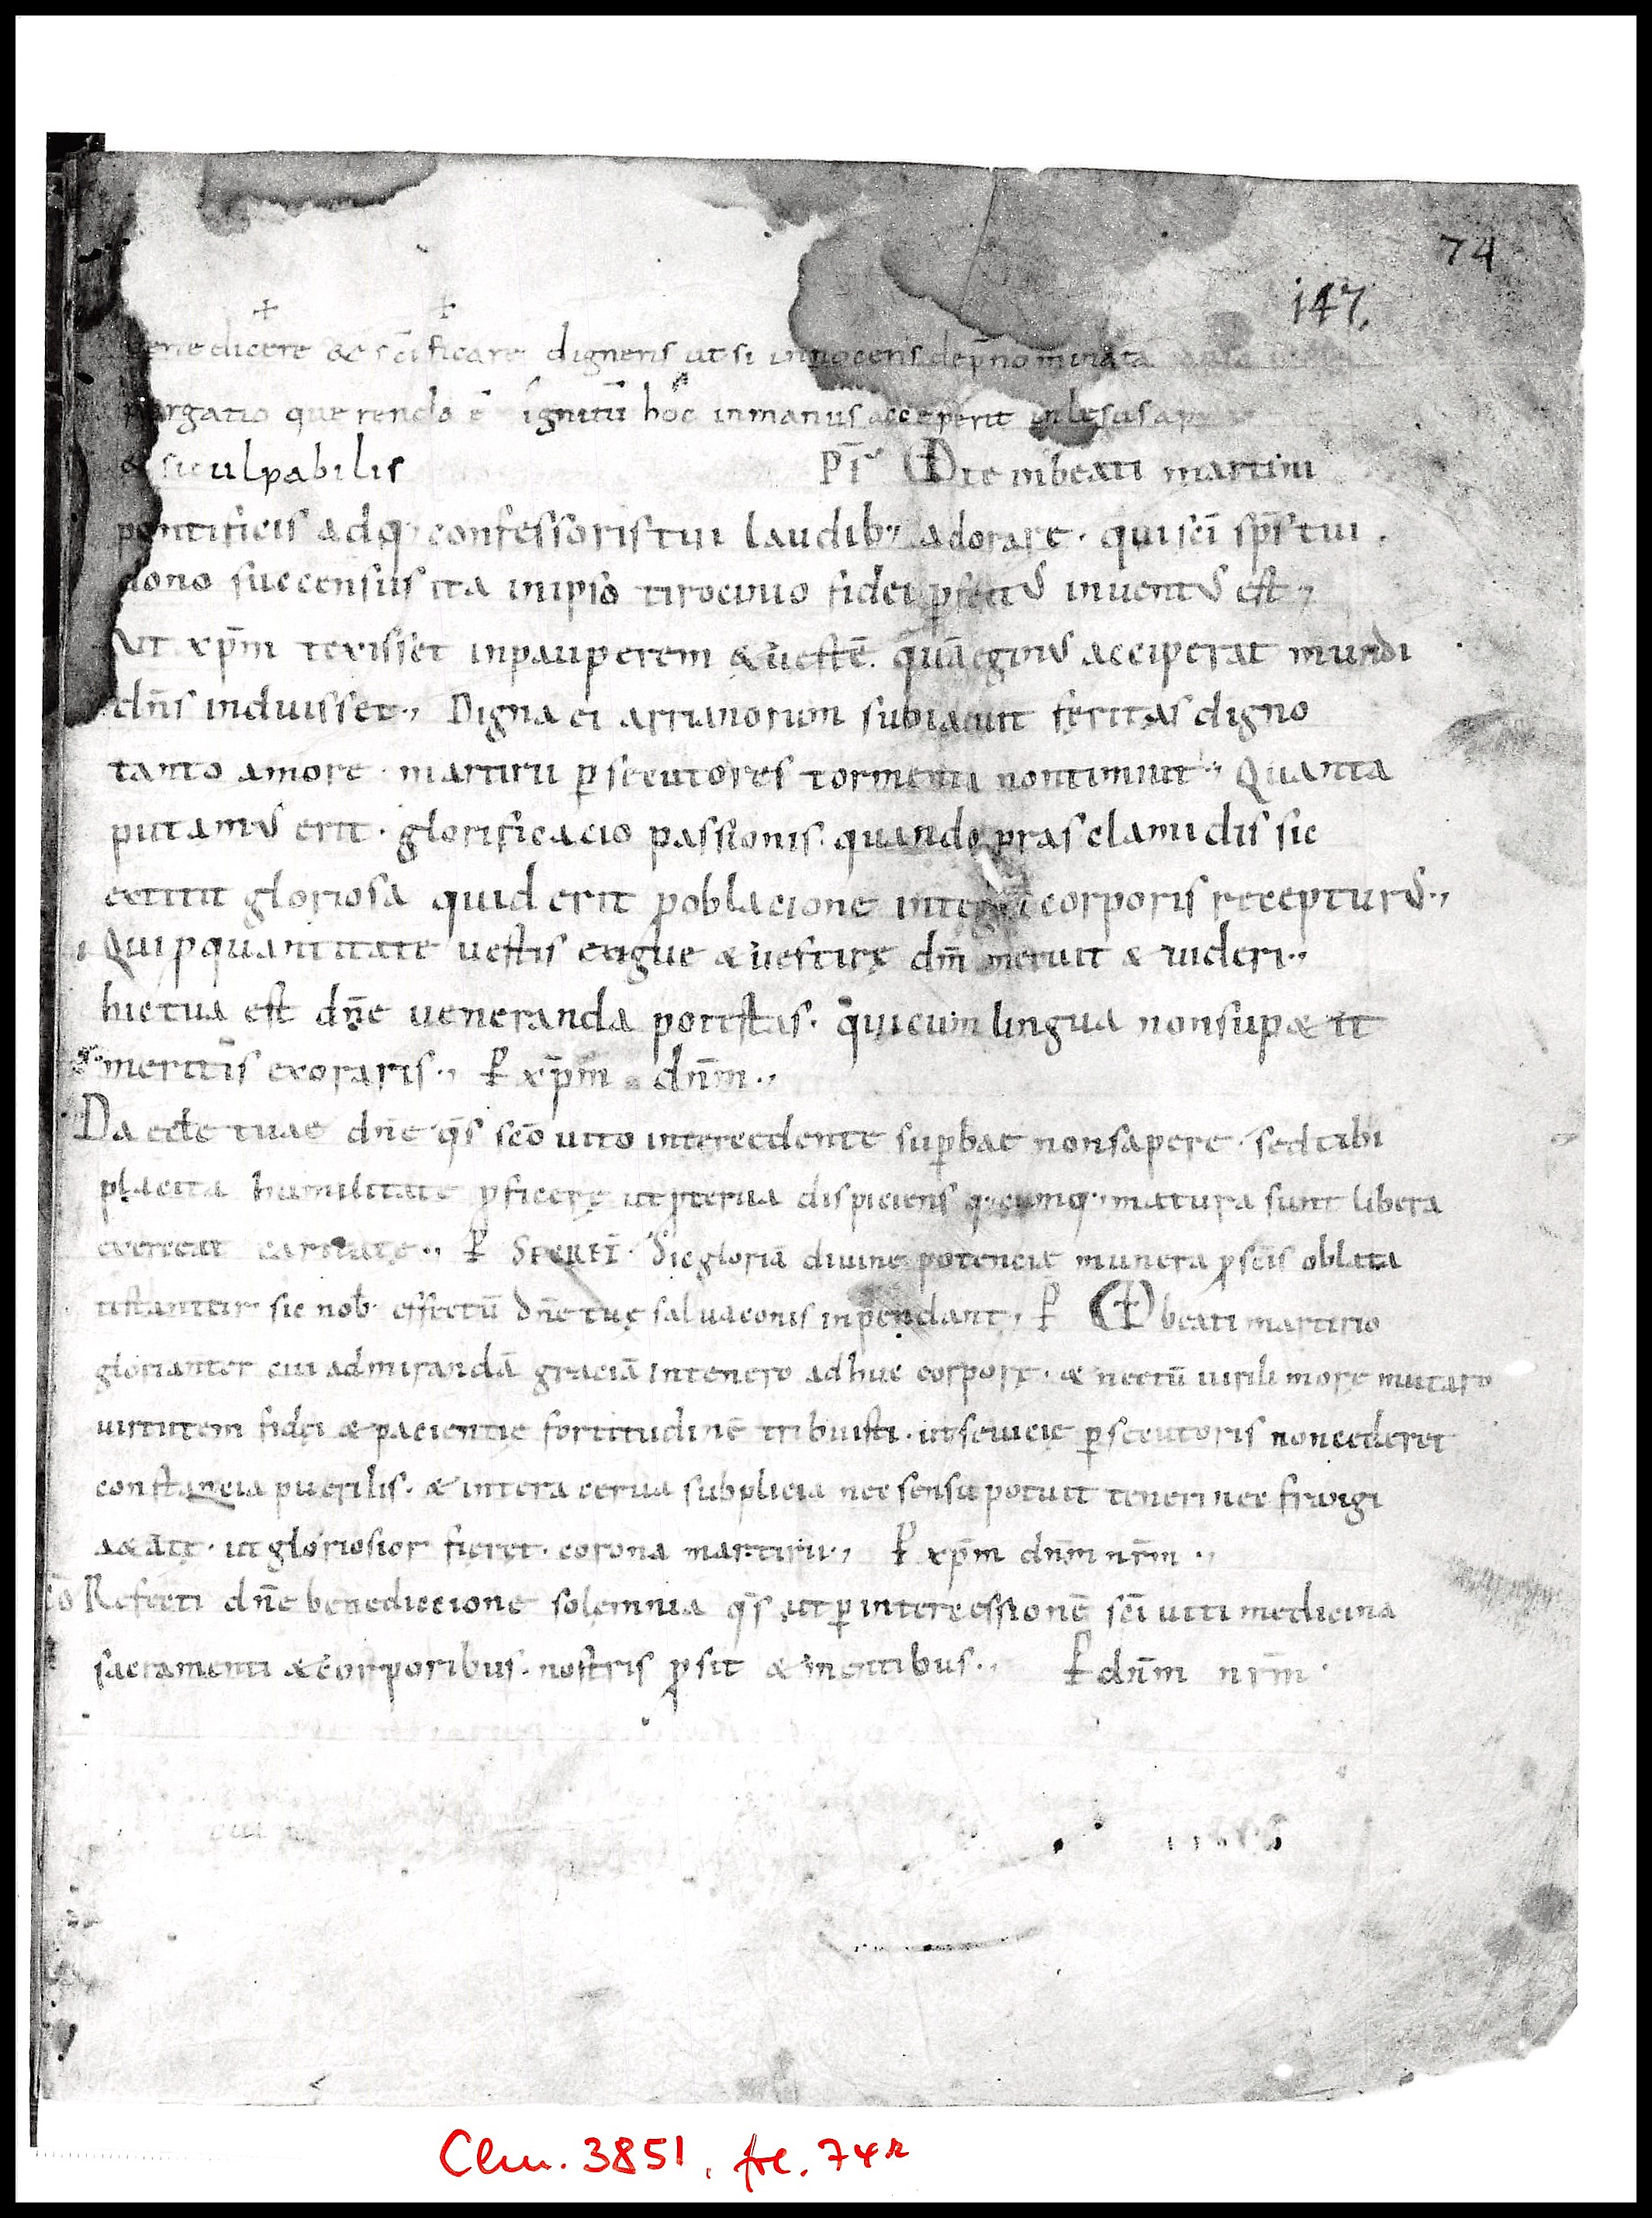 74
147.
benedicere & scīficare digneris ut si innocens de p̄nominata
purgatio querenda ē ignitū hoc in manus acceperit inlesas
& si culpabilis P̄F Te in beati martini
pontificis adq; confessoris tui laudib; adorare · qui sc̄i sp̄s tui ·
dono succensus ita in ipso tirocinio fidei ꝑfectus inuentus est ;
Ut xp̄m texisset in pauperem & uestē · quā egenus acciperat mundi
dn̄s induisset ·, Digna ei arrianorum subiacuit feritas digno
tanto amore · martirii ꝑsecutores tormenta non timuit ·, Quanta
putamus erit · glorificacio passionis · quando pras clamidis sic
extitit gloriosa quid erit ꝓ oblacione integri corporis recepturus ·,
Qui ꝓ quantitate uestis exigue & uestire dn̄m meruit & uideri ·,
hic tua est dn̄e ueneranda potestas · qui cum lingua non sup&it
meritis exoraris ·, ꝑ xp̄m dn̄m ·,
Da eccle tuae dn̄e q̄s sc̄o uito intercedente suꝑbae non sapere · sed tibi
placita humilitate ꝓficere ut ꝓterua dispiciens q; cumq; matura sunt libera
exerceat caritate ·, ꝑ SECRET̄ · Sic gloriā diuine potencie munera ꝓ sc̄is oblata
tistantur sic nob̄ effectū dn̄e tue saluaconis inpendant, ꝑ beati martirio
gloriantes cui admirandā graciā in tenero adhuc corpore · & necdū uirili more mutaro
uirtutem fidei & paciencie fortitudinē tribuisti · ut seuicie ꝑsecutoris non cederet
constancia puerilis · & inter acerua subplicia nec sensu potuit teneri nec frangi
a&ate · ut gloriosior fieret · corona martirii ·, ꝑ xp̄m dn̄m nr̄m ·,
cō Referti dn̄e benediccione solemnia q̄s ut ꝑ intercessionē sc̄i uiti medicina
sacramenti & corporibus · nostris ꝓsit & mentibus ·, ꝑ dn̄m nr̄m ·
Clm. 3851, fol. 74r